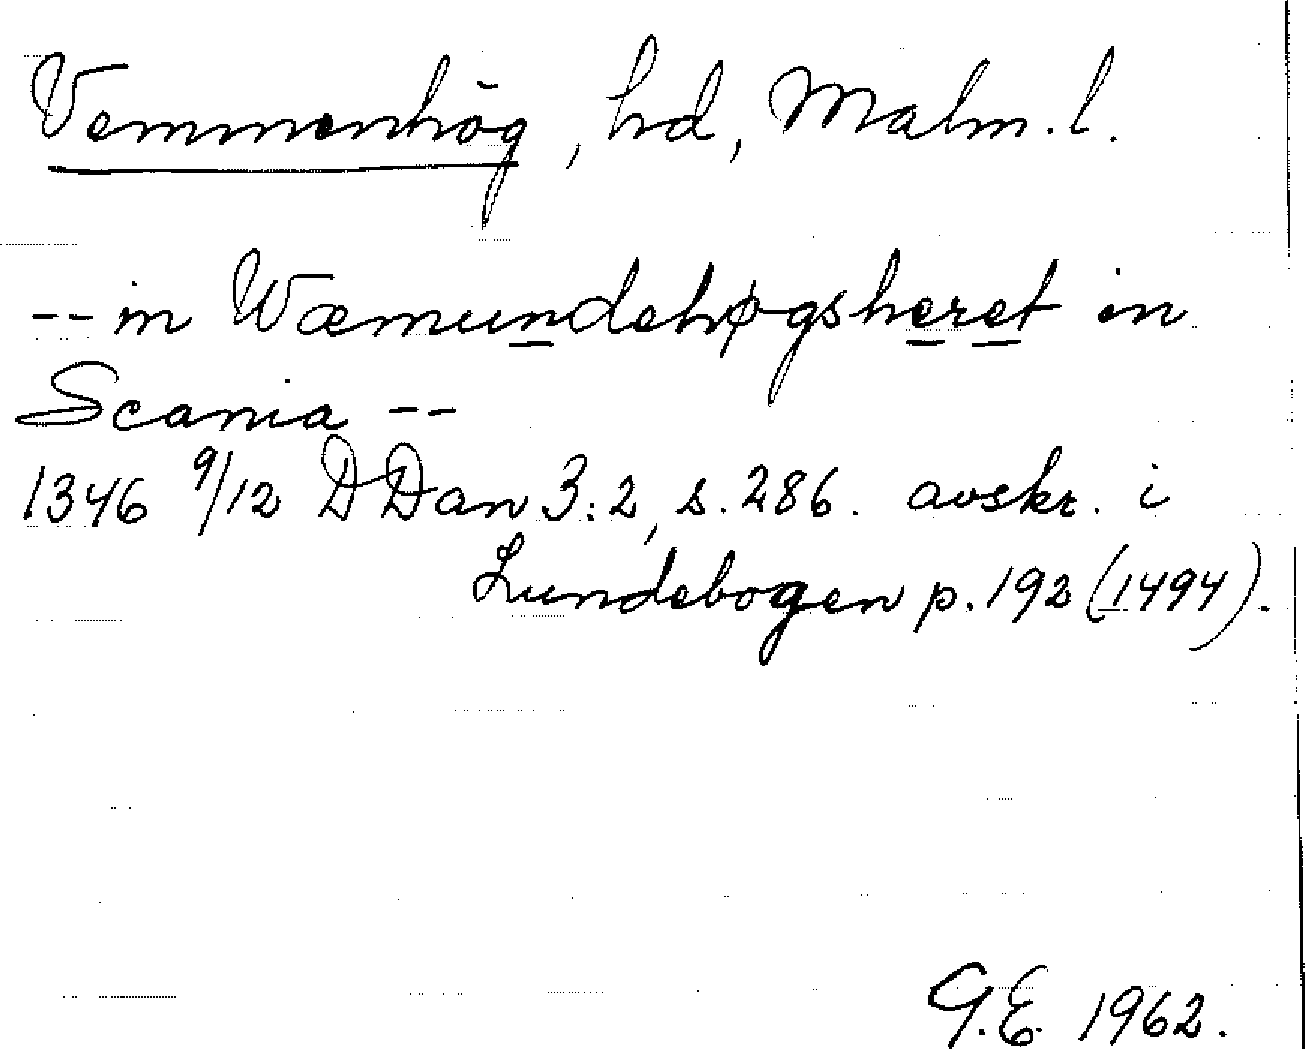 Vemmenhög, hd, Malm. l.
-- in Wæmundehøgsheret in
Scania --
1346 9/12 DDan 3:2, s. 286. avskr. i
Lundebogen p. 192 (1494).
G.E. 1962.